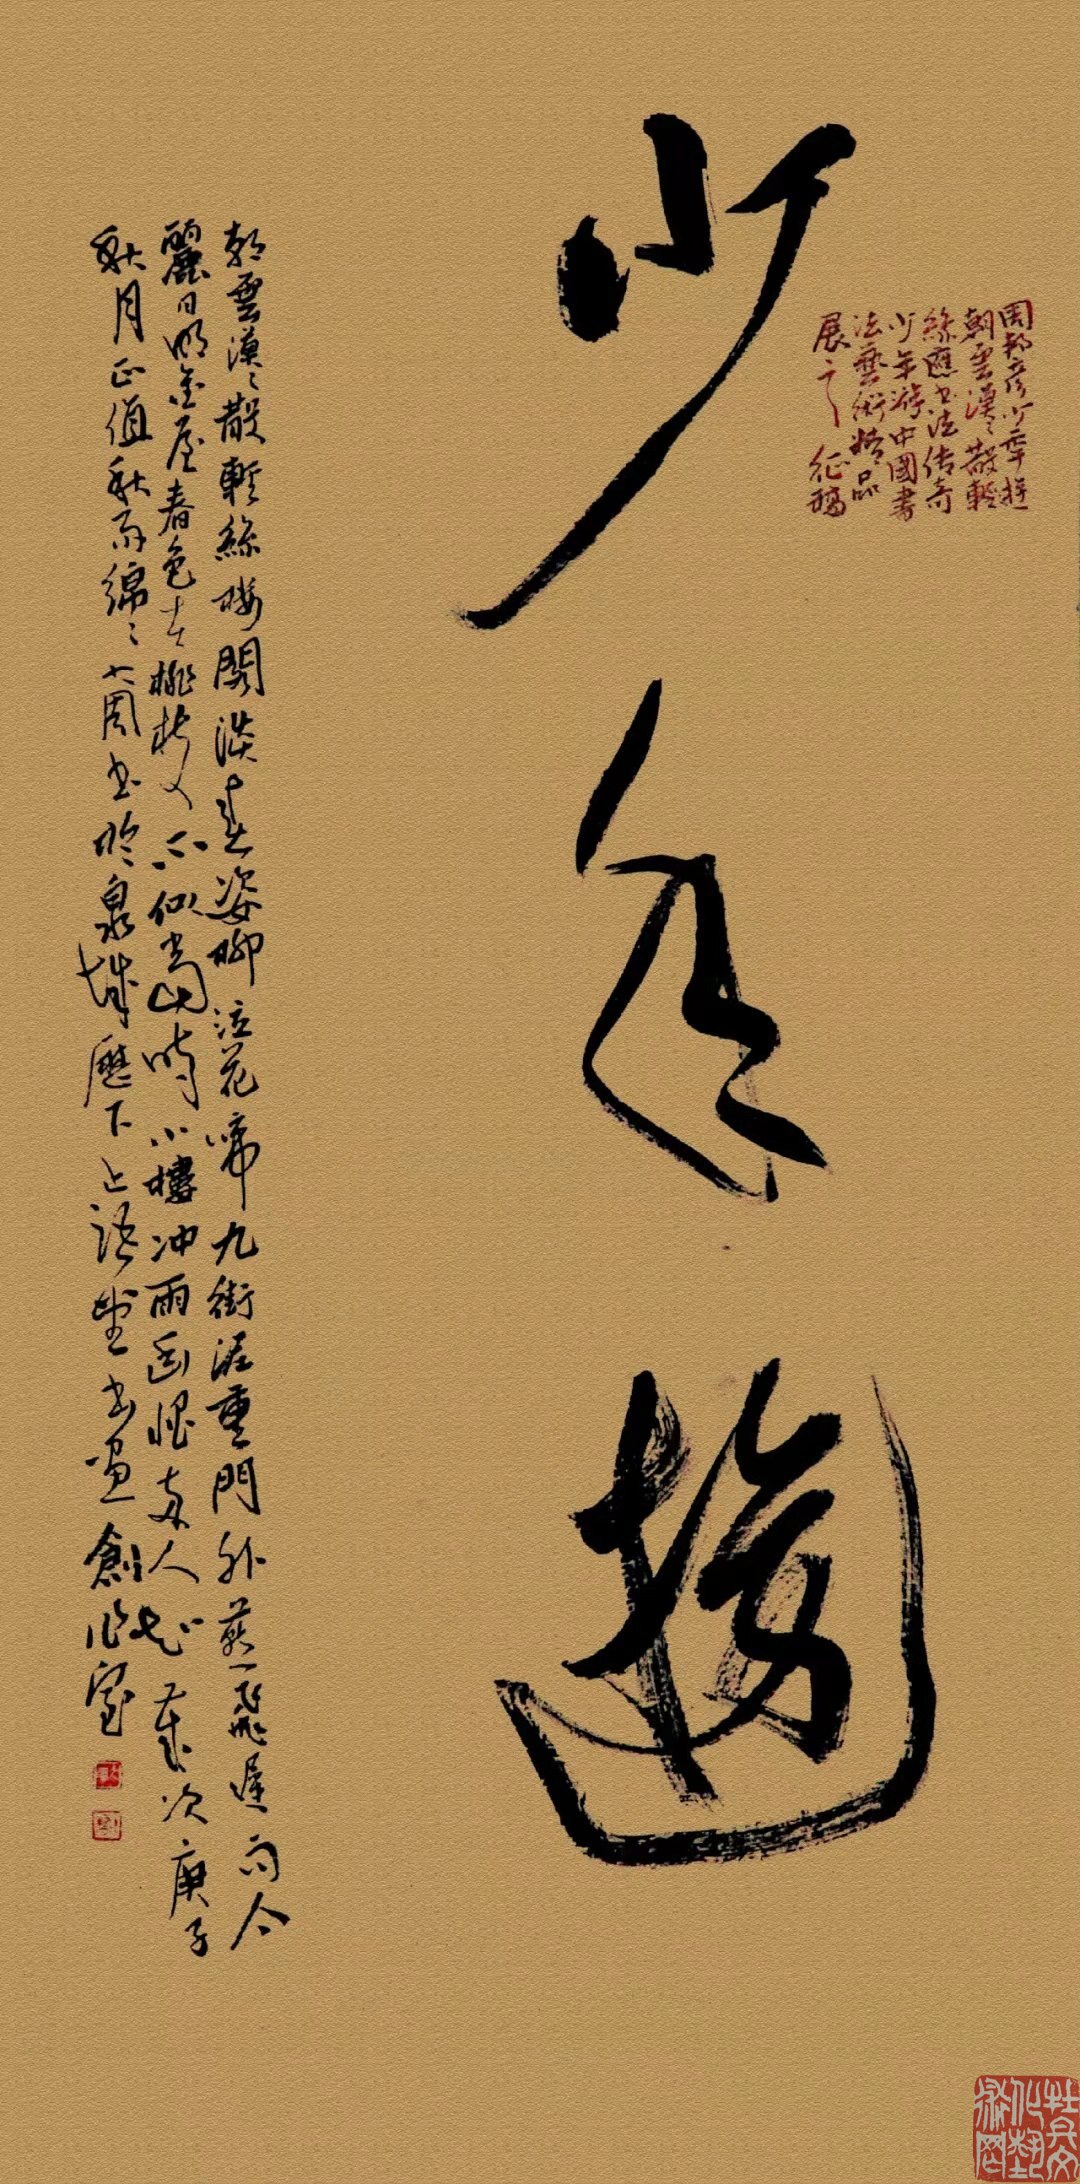 周邦彦少年遊
朝雲漠々散輕
絲匯书法传奇
少年游中國書
法藝術精品
展之 征稿
少年遊
朝雲漠々散輕絲楼閣淡春姿柳泣花啼九街泥重門外燕飛遲而今
麗日明金屋春色在桃枝不似當時小樓冲雨幽恨兩人知歲次庚子
秋月正值秋雨綿々大周书於泉城歷下上語堂书画創作室